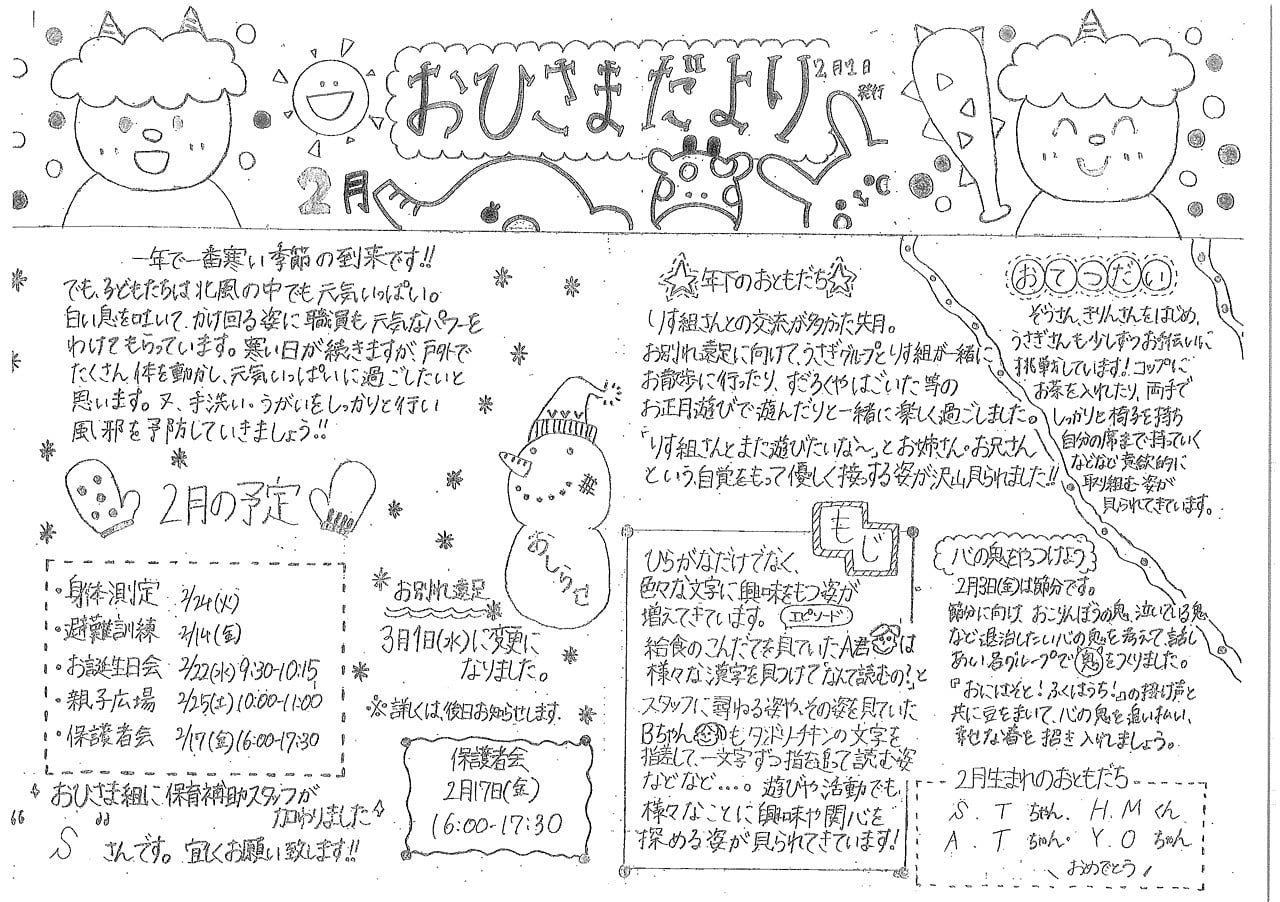 おひさまだより
2月1日
発行
2月
一年で一番寒い季節の到来です!!
でも、子どもたちは北風の中でも元気いっぱい。
白い息を吐いて、かけ回る姿に職員も元気なパワーを
わけてもらっています。寒い日が続きますが、戸外で
たくさん体を動かし、元気いっぱいに過ごしたいと
思います。又、手洗い・うがいをしっかりと行い
風邪を予防していきましょう!!
2月の予定
・身体測定 2/24(火)
・避難訓練 2/14(金)
・お誕生日会 2/22(水)9:30-10:15
・親子広場 2/25(土)10:00-11:00
・保護者会 2/17(金)16:00-17:30
おひさま組に保育補助スタッフが
加わりました
S さんです。宜しくお願い致します!!
おしらせ
お別れ遠足
3月1日(水)に変更に
なりました。
※詳しくは、後日お知らせします。
保護者会
2月17日(金)
16:00-17:30
☆年下のおともだち☆
りす組さんとの交流が多かった先月。
お別れ遠足に向けて、うさぎグループとりす組が一緒に
お散歩に行ったり、すごろくやはごいた等の
お正月遊びで遊んだりと一緒に楽しく過ごしました。
「りす組さんとまた遊びたいな〜」とお姉さん・お兄さん
という自覚をもって優しく接っする姿が沢山見られました!!
もじ
ひらがなだけでなく、
色々な文字に興味をもつ姿が
増えてきています。
エピソード
給食のこんだてを見ていたA君は
様々な漢字を見つけて「なんて読むの!」と
スタッフに尋ねる姿や、その姿を見ていた
Bちゃんもタンドリーチキンの文字を
指差して、一文字ずつ指を追って読む姿
などなど…。遊びや活動でも、
様々なことに興味や関心を
深める姿が見られてきています!
おてつだい
ぞうさん、きりんさんをはじめ、
うさぎさんも少しずつお手伝いに
挑戦しています!コップに
お茶を入れたり、両手で
しっかりと椅子を持ち
自分の席まで持っていく
などなど意欲的に
取り組む姿が
見られてきています。
心の鬼をやっつけよう
2月3日(金)は節分です。
節分に向け、おこりんぼうの鬼、泣いている鬼
など退治したい心の鬼を考えて、話し
あい各グループで鬼をつくりました。
『おにはそと!ふくはうち!』の掛け声と
共に豆をまいて、心の鬼を追い払い、
幸せな春を招き入れましょう。
2月生まれのおともだち
S. T ちゃん. H. M くん
A. T ちゃん. Y. O ちゃん
おめでとう